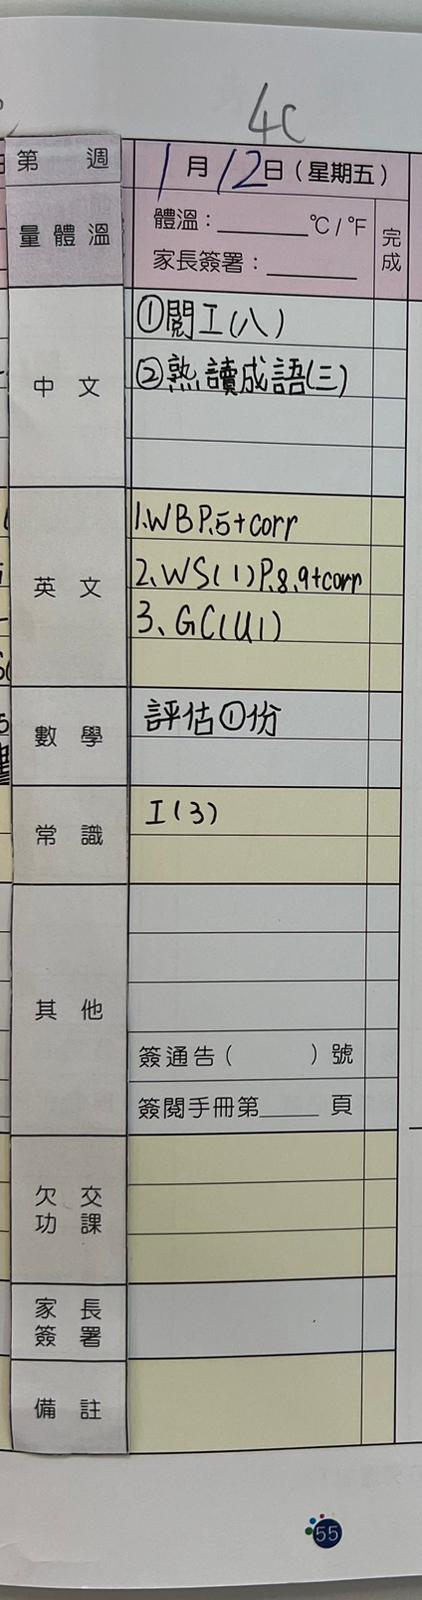 4C
第 週
1月12日（星期五）
量體溫
體溫：______℃/℉
家長簽署：______
完成
中文
①閱工(八)
②熟讀成語(三)
英文
1、WB P.5+corr
2、WS(1)P.8、9+corr
3、GC(U1)
數學
評估①份
常識
工(3)
其他
簽通告（ ）號
簽閱手冊第____頁
欠交功課
家長簽署
備註
55